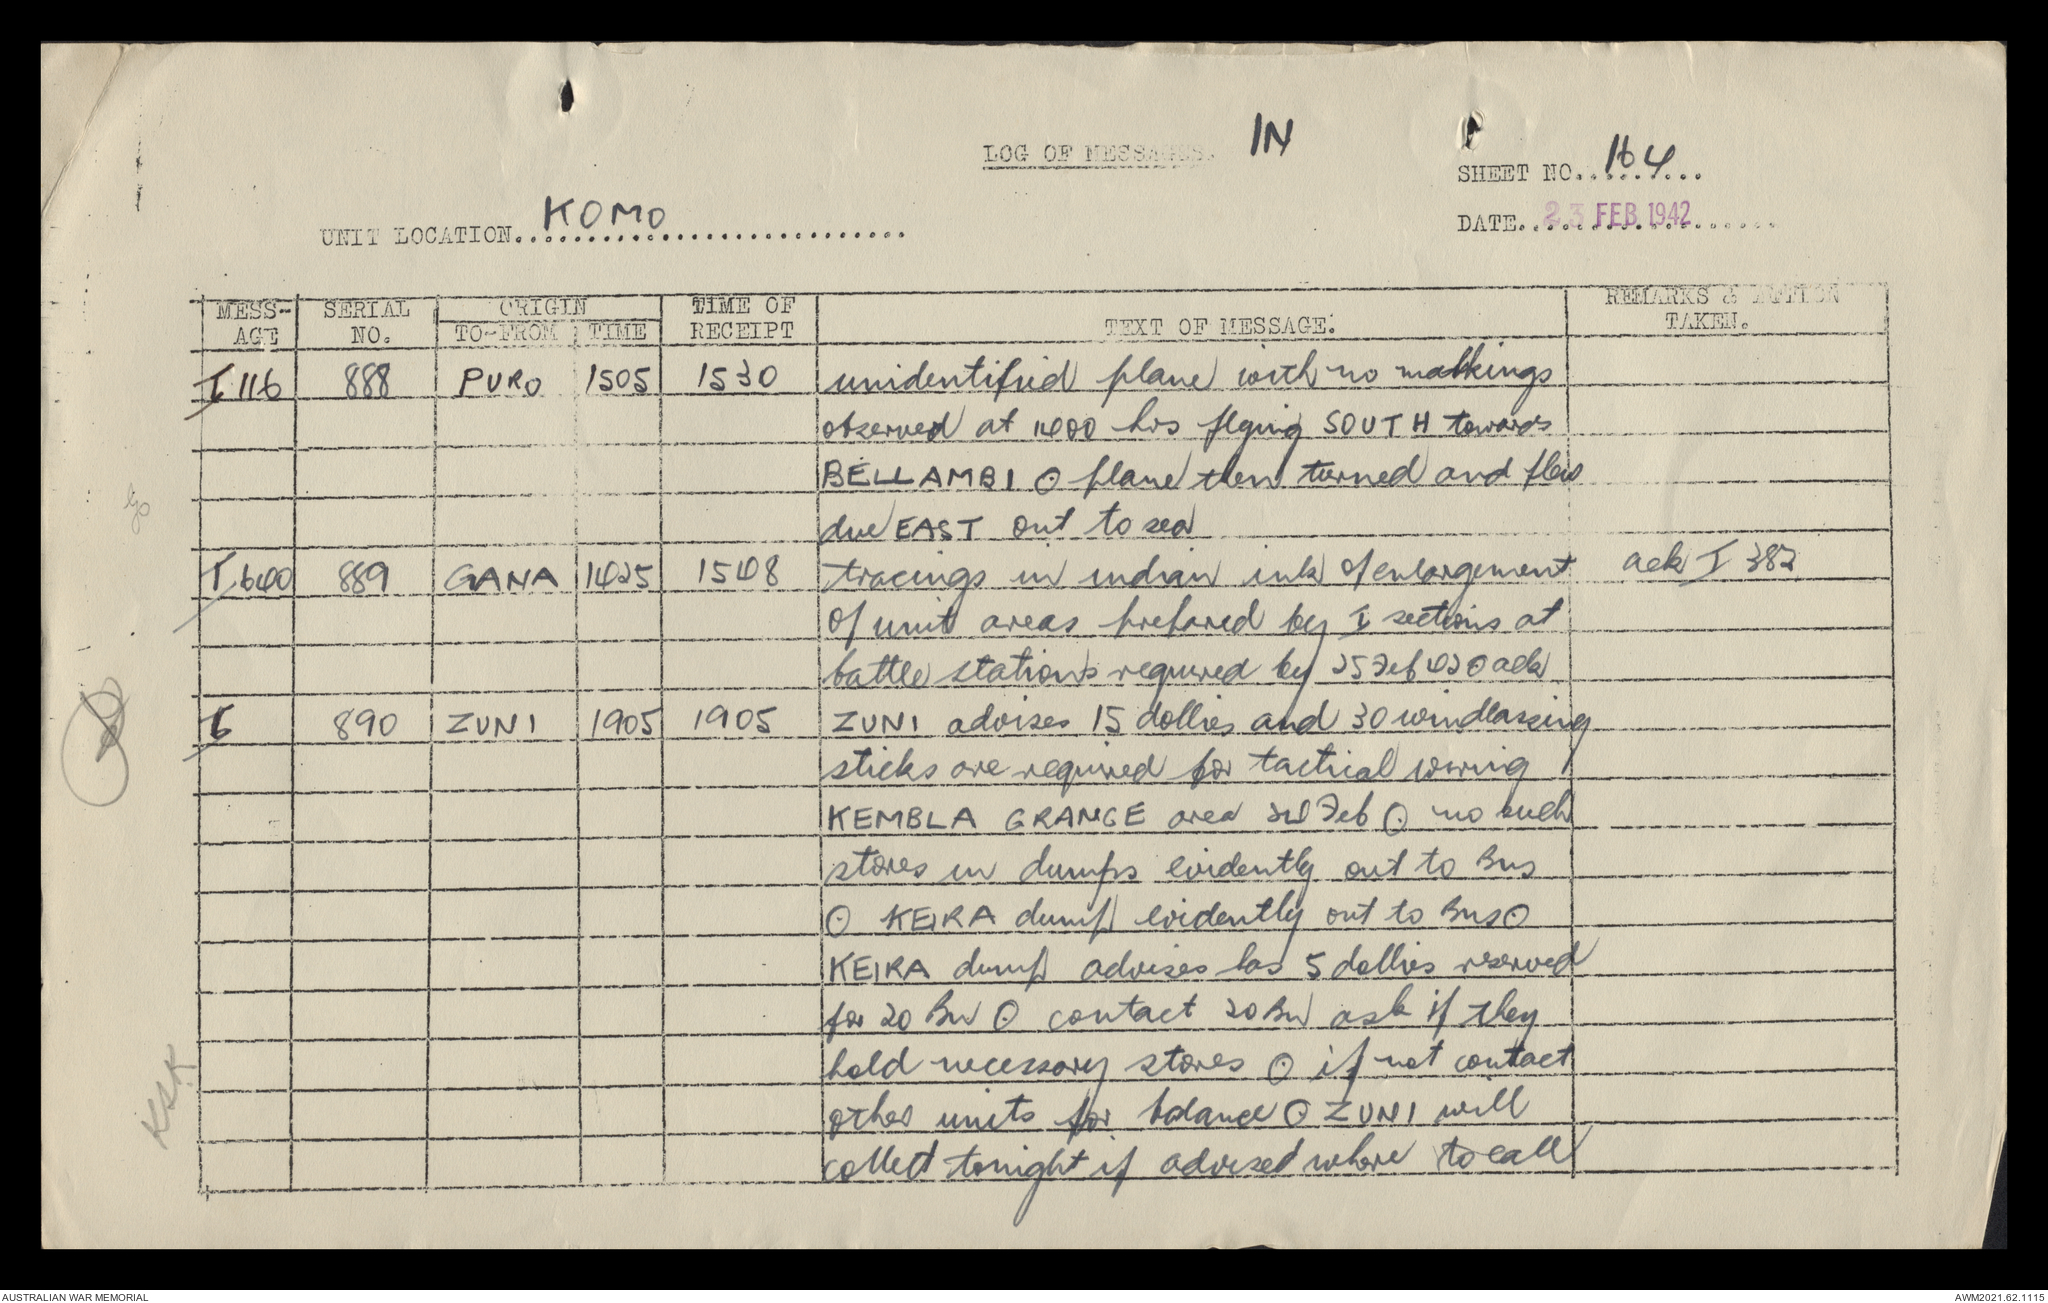 LOG OF MESSAGES. IN
SHEET NO. 164
UNIT LOCATION KOMO
DATE 23 FEB 1942
MESS-AGE SERIAL NO. ORIGIN TO-FROM TIME TIME OF RECEIPT TEXT OF MESSAGE. REMARKS & ACTION TAKEN.
I 116 888 PURO 1505 1530 unidentified plane with no markings
observed at 1400 hrs flying SOUTH towards
BELLAMBI ⊙ plane then turned and flew
due EAST out to sea
I 640 889 GANA 1425 1548 tracings in indian ink of enlargement ack I 382
of unit areas prepared by I sections at
battle stations required by 25 Feb 42 ⊙ ack
890 ZUNI 1905 1905 ZUNI advises 15 dollies and 30 windlassing
sticks are required for tactical wiring
KEMBLA GRANGE area 24 Feb ⊙ no such
stores in dumps evidently out to Bns
⊙ KEIRA dump evidently out to Bns ⊙
KEIRA dump advises has 5 dollies reserved
for 20 Bn ⊙ contact 20 Bn ask if they
hold necessary stores ⊙ if not contact
other units for balance ⊙ ZUNI will
collect tonight if advised where to call
KSK
AUSTRALIAN WAR MEMORIAL
AWM2021.62.1115